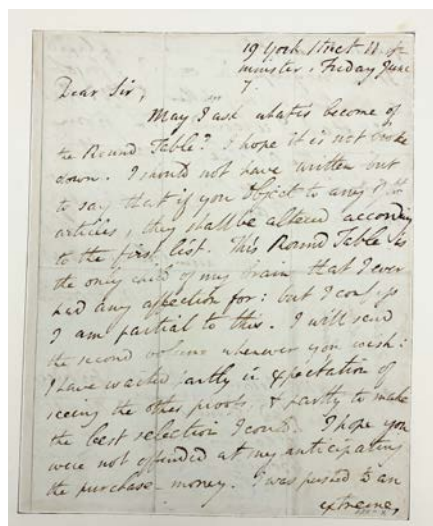 19 York Street W. St
minster, Friday June
7.
Dear Sir,
May I ask what is become of
the Round Table? I hope it is not broke
down. I should not have written but
to say that if you object to any of the
articles, they shall be altered according
to the first list. This Round Table is
the only child of my brain that I ever
had any affection for: but I confess
I am partial to this. I will send
the second volume whenever you wish:
I have waited partly in expectation of
seeing the other proofs, & partly to make
the best selection I could. I hope you
were not offended at my anticipating
the purchase-money. I was pushed to an
extreme,